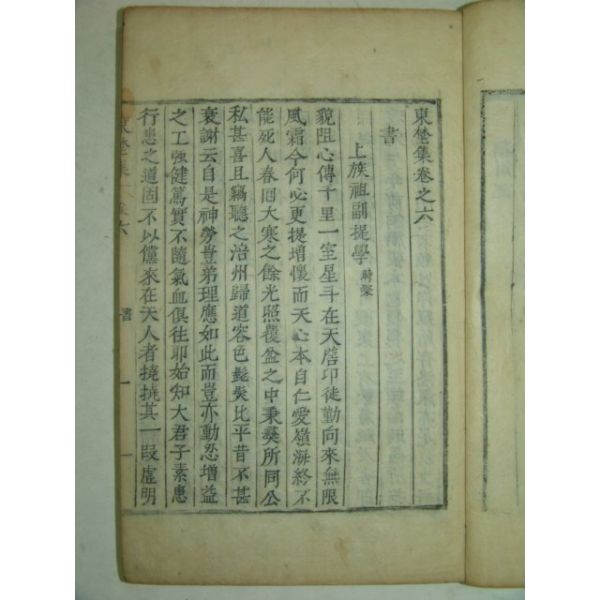 東埜集卷之六
書
上族祖副提學
貌阻心傳千里一室星斗在天膺印徒勤向來無限
風霜今何必更提增懷而天心本自仁愛嶺海終不
能死人春回大寒之餘光照覆盆之中秉彝所同公
私甚喜且竊聽之洽州歸道容色髭髮比平昔不甚
衰謝云自是神勞豈弟理應如此而豈亦動忍增益
之工強健篤實不隨氣血俱往耶始知大君子素患
行患之道固不以儻來在天人者撓撓其一段虛明
東埜集 卷六 書 一